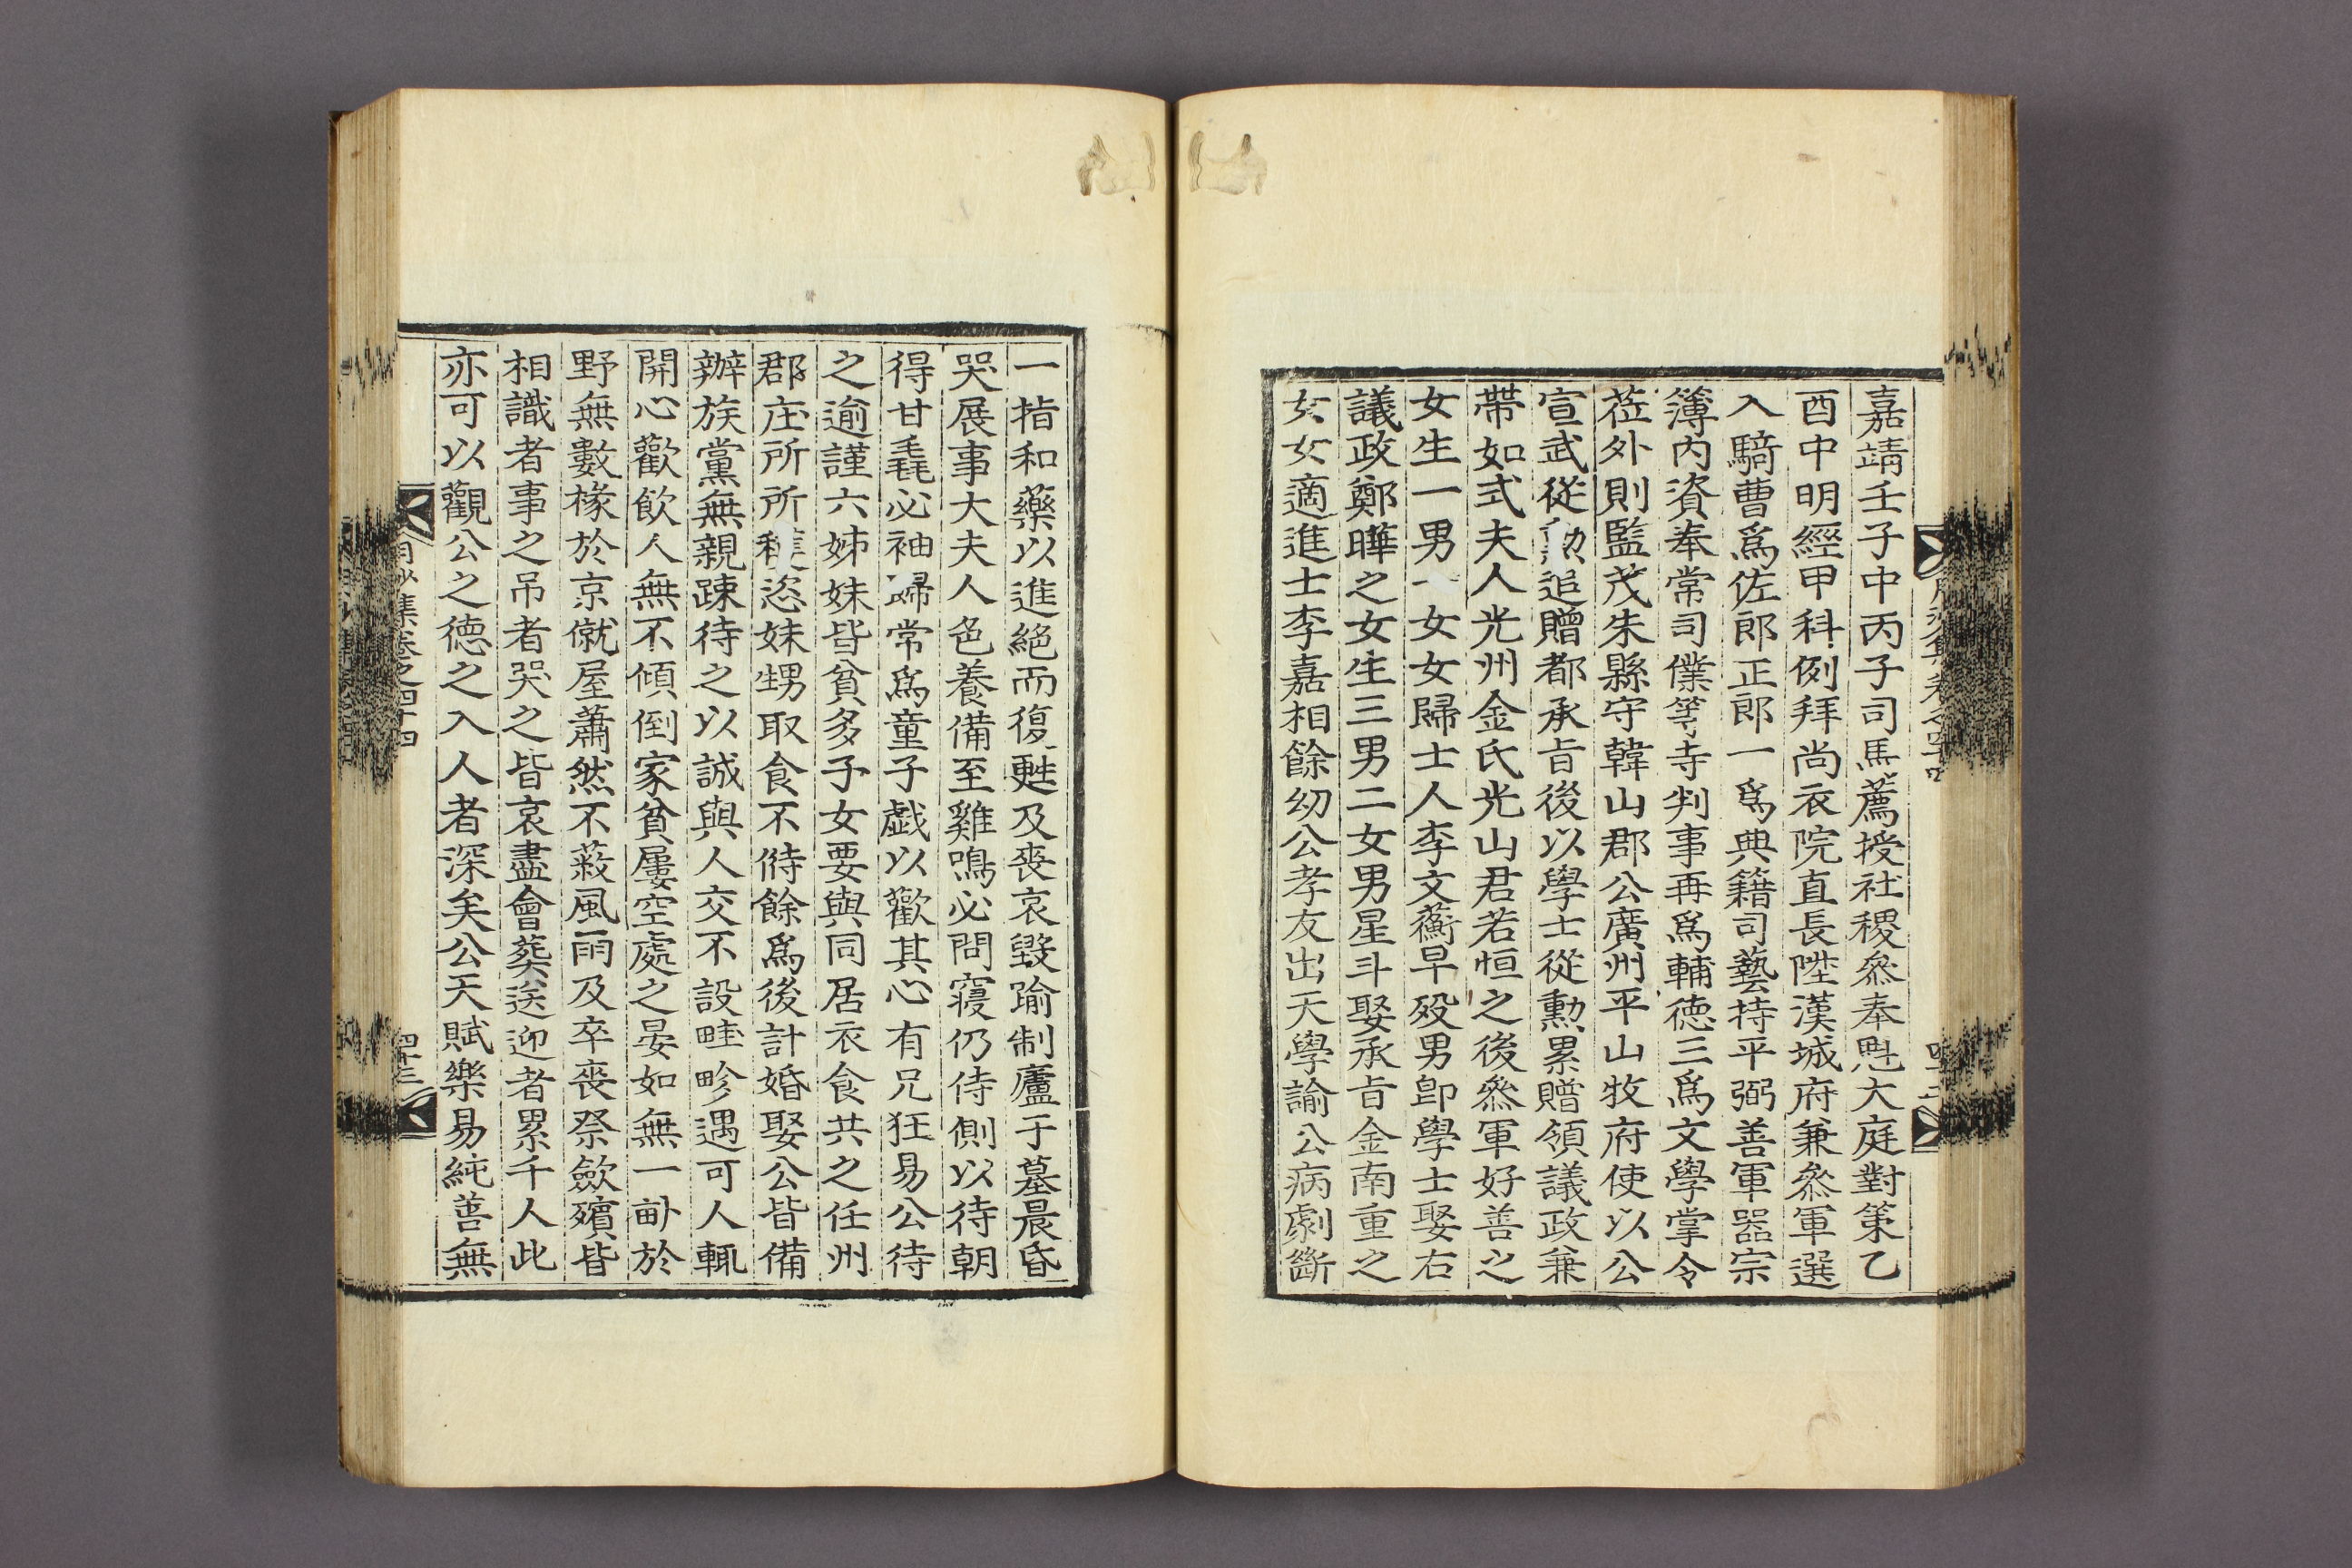 嘉靖壬子中丙子司馬薦授社稷叅奉魁大庭對策乙
酉中明經甲科例拜尚衣院直長陞漢城府兼叅軍選
入騎曹爲佐郎正郎一爲典籍司藝持平弼善軍器宗
簿內資奉常司僕等寺判事再爲輔德三爲文學掌令
莅外則監茂朱縣守韓山郡公廣州平山牧府使以公
宣武從勳追贈都承旨後以學士從勳累贈領議政兼
帶如式夫人光州金氏光山君若恒之後叅軍好善之
女生一男一女女歸士人李文蘅早歿男卽學士娶右
議政鄭曄之女生三男二女男星斗娶承旨金南重之
女女適進士李嘉相餘幼公孝友出天學諭公病劇斷
一指和藥以進絕而復甦及喪哀毀踰制廬于墓晨昏
哭展事大夫人色養備至雞鳴必問寢仍侍側以待朝
得甘毳必袖歸常爲童子戱以歡其心有兄狂易公待
之逾謹六姊妹皆貧多子女要與同居衣食共之任州
郡庄所所穫恣妹甥取食不偫餘爲後計婚娶公皆備
辦族黨無親踈待之以誠與人交不設畦畛遇可人輒
開心歡飮人無不傾倒家貧屢空處之晏如無一畝於
野無數椽於京僦屋蕭然不蔽風雨及卒喪祭斂殯皆
相識者事之吊者哭之皆哀盡會葬送迎者累千人此
亦可以觀公之德之入人者深矣公天賦樂易純善無
月沙集卷之四十四
四十三